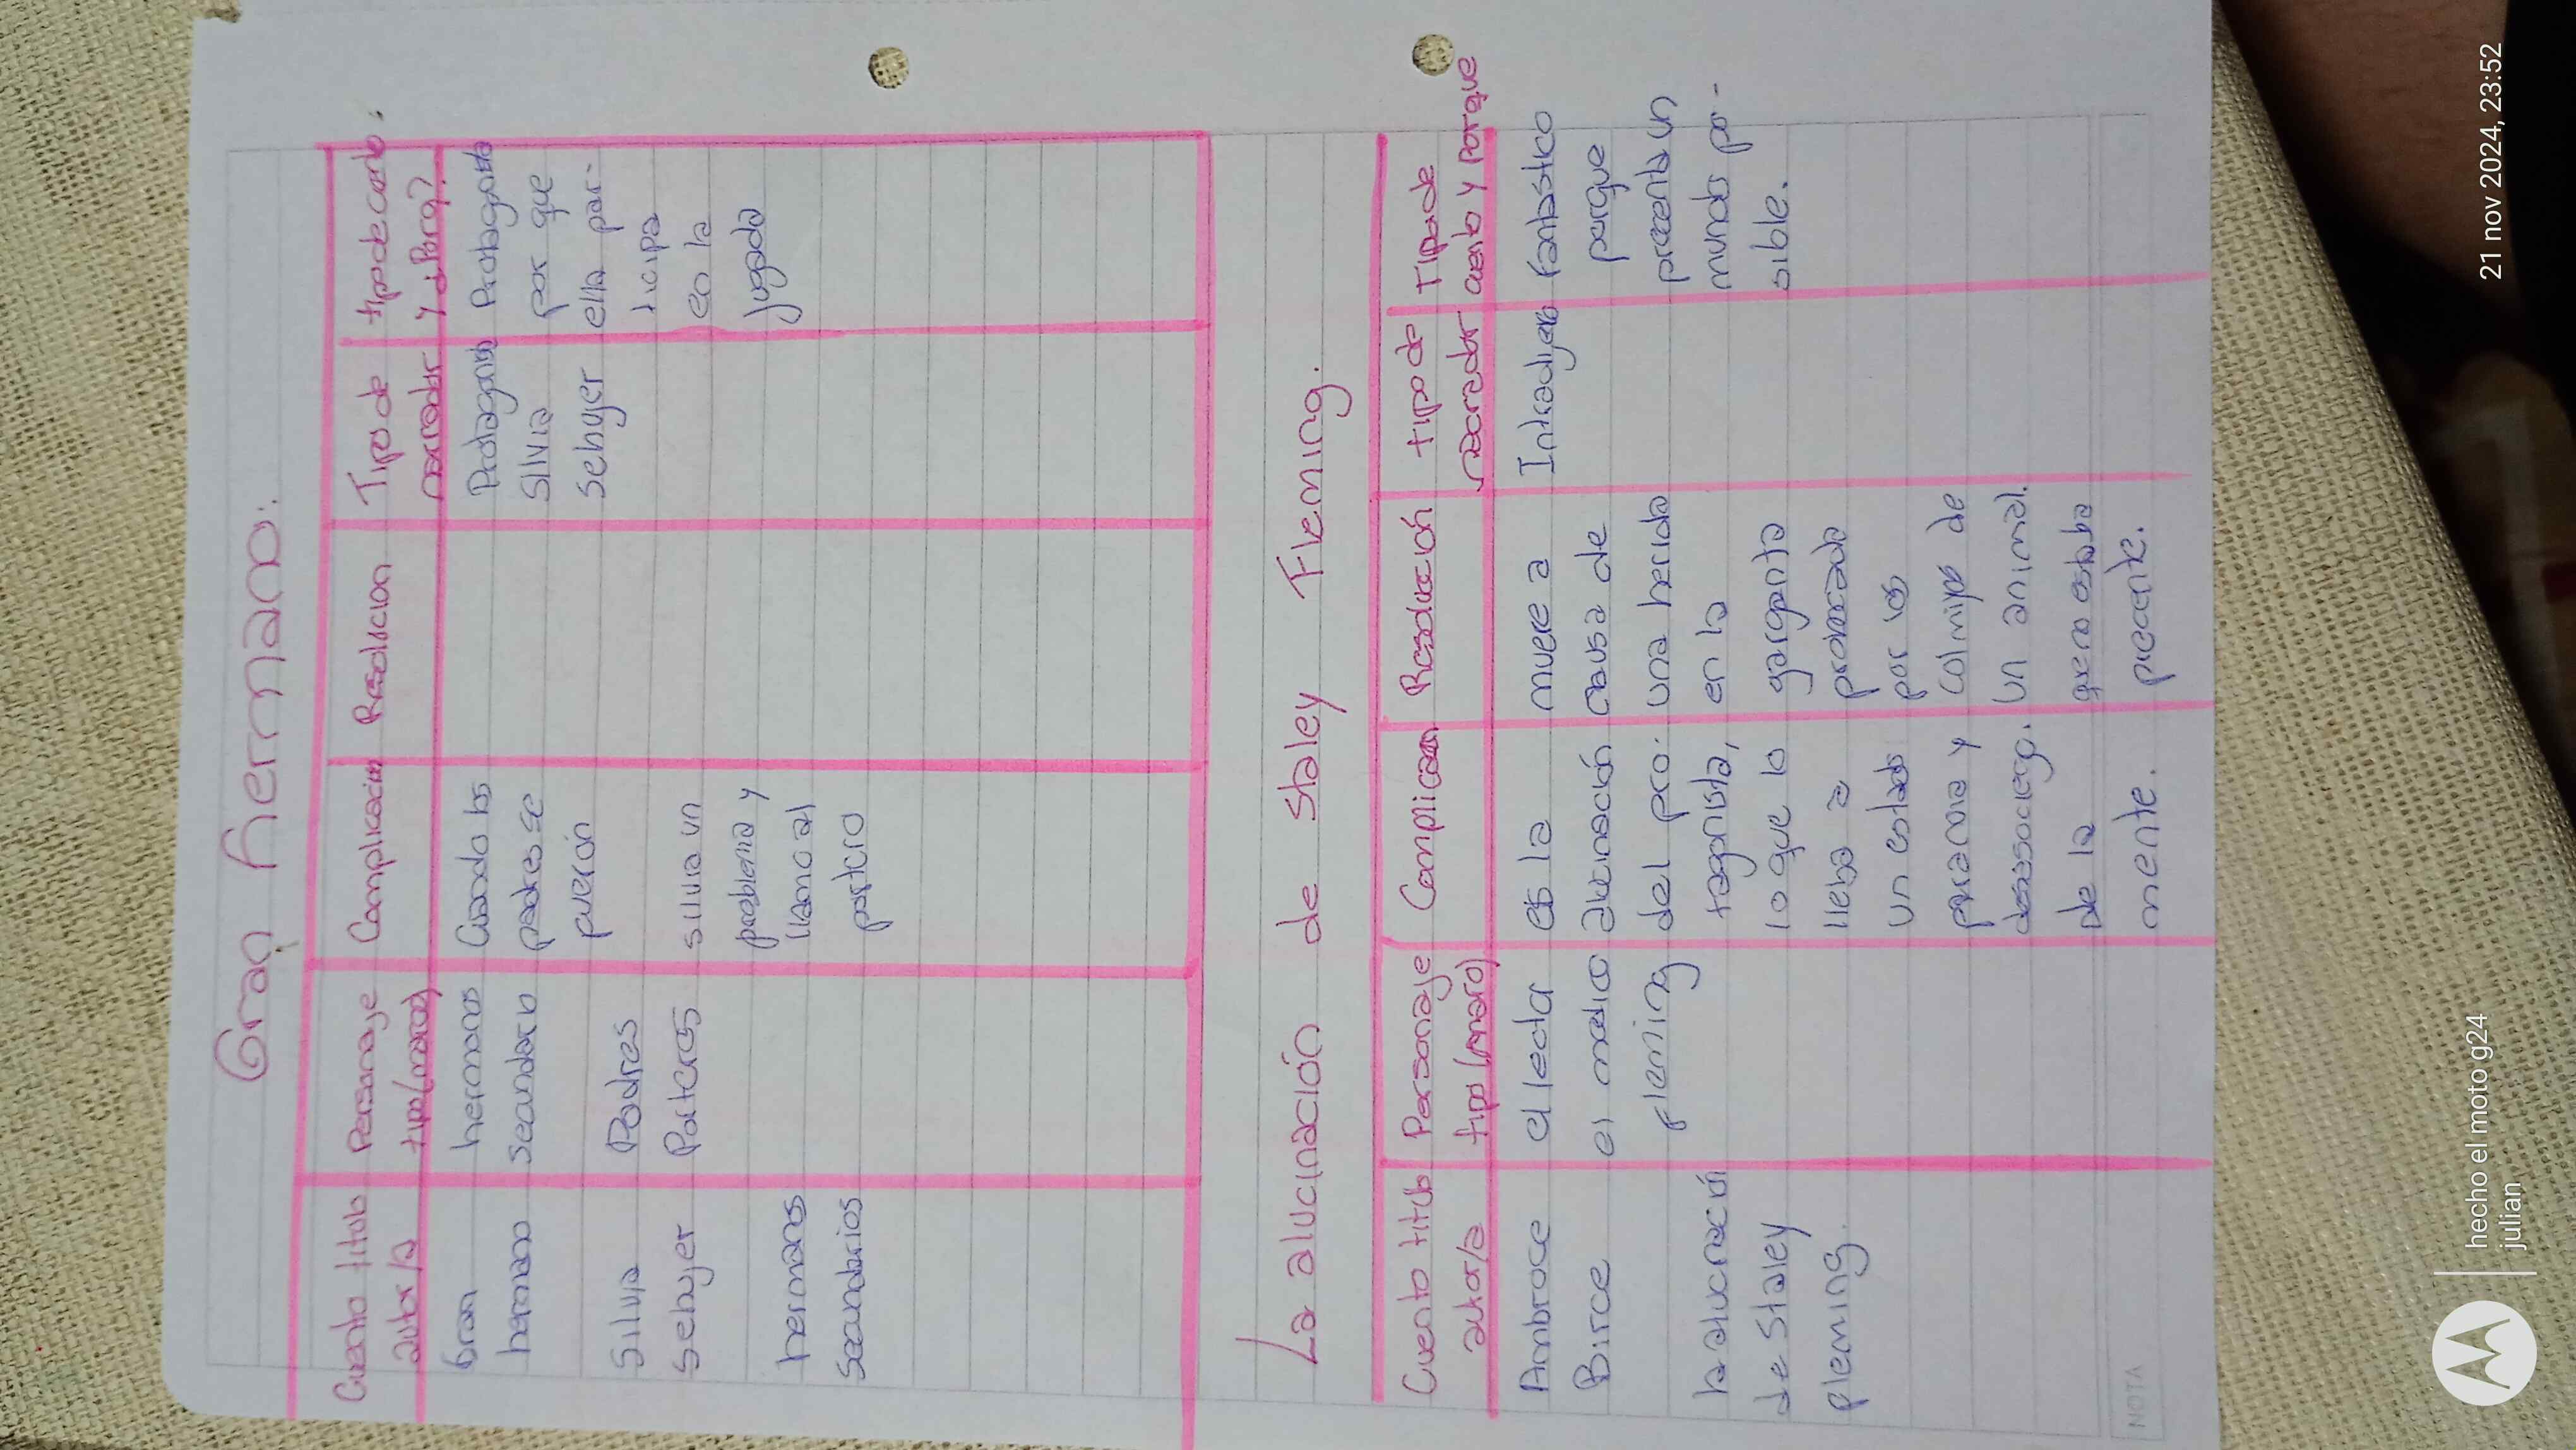 Gran hermano.
Cuento titulo autor/a
Personaje tipo (marca)
Complicación
Resolicion
Tipo de narrador
tipo de cuento y ¿Porq?
Gran
hermano
Silvia
sehujer
hermanos
secundarios
hermanos
secundario
Padres
Porteros
Cuando los
padres se
fueron
silvia un
problema y
llamo al
portero
Protagonis
Silvia
sehujer
Protagonista
por que
ella par-
ticipa
en la
jugada
La alucinación de Staley Fleming.
Cuento titulo
autor/a
Personaje
tipo
Complicacion
Resolución
tipo de
narrador
Tipo de
cuento y porque
Ambroce
Birce
la alucinación
de Staley
fleming.
el lector
el medico
fleming
es la
alucinación
del pro-
tagonista,
lo que lo
lleba a
un estado
paranoia y
desasociego.
de la
mente.
muere a
causa de
una herida
en la
garganta
probocada
por los
colmillos de
un animal.
que no estaba
precente.
Intradijetico
fantastico
porque
precenta un
mundo po-
sible.
NOTA
hecho el moto g24
julian
21 nov 2024, 23:52